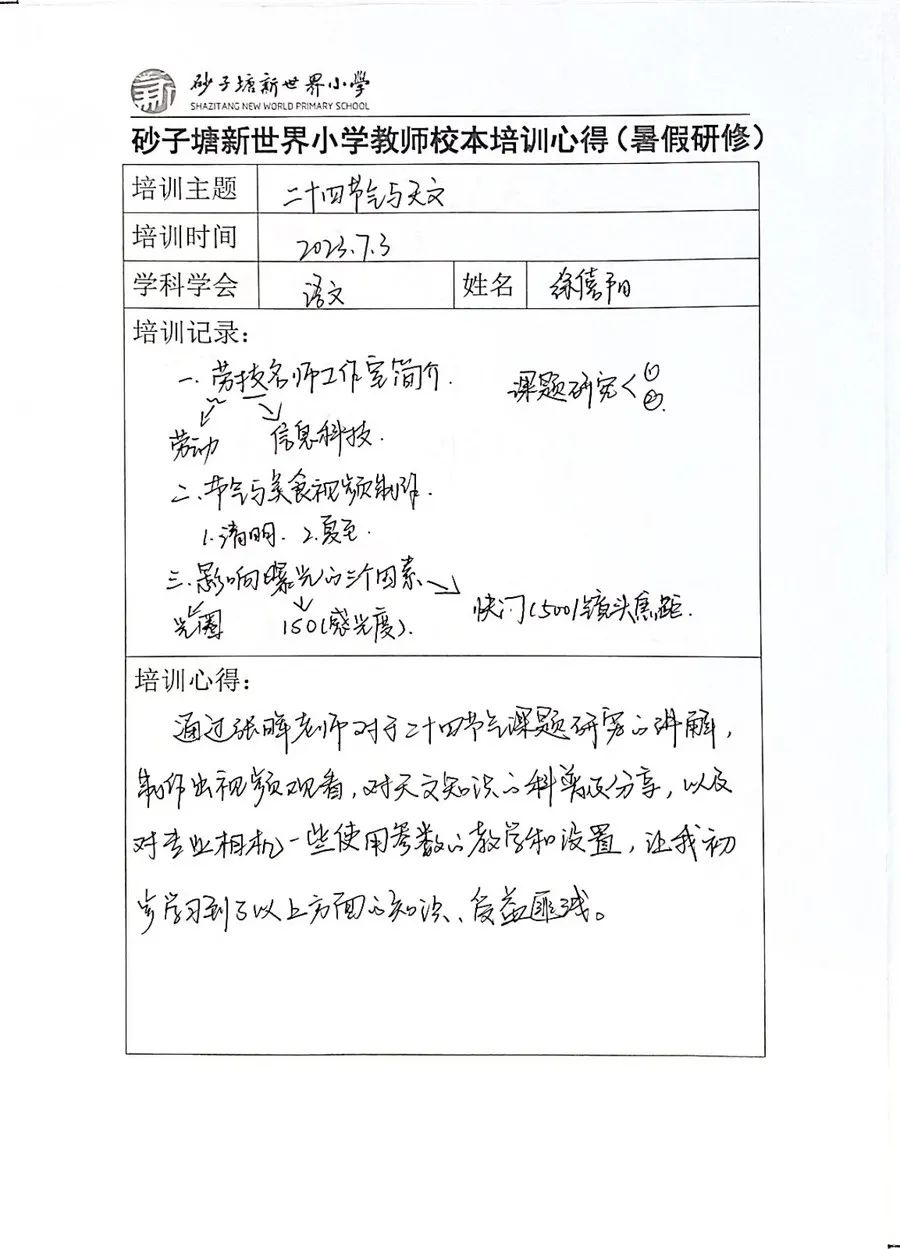 砂子塘新世界小学
SHAZITANG NEW WORLD PRIMARY SCHOOL
砂子塘新世界小学教师校本培训心得（暑假研修）
培训主题 二十四节气与天文
培训时间 2023.7.3
学科学会 语文 姓名 徐僖阳
培训记录：
一.劳技名师工作室简介. 课题研究< ① ②.
劳动 信息科技.
二、节气与美食视频制作.
1.清明. 2.夏至.
三.影响曝光的三个因素
光圈 ISO(感光度). 快门(500)镜头焦距.
培训心得：
通过张晖老师对于二十四节气课题研究的讲解，
制作出视频观看，对天文知识的科普及分享，以及
对专业相机一些使用参数的教学和设置，让我初
步学习到了以上方面的知识、受益匪浅。